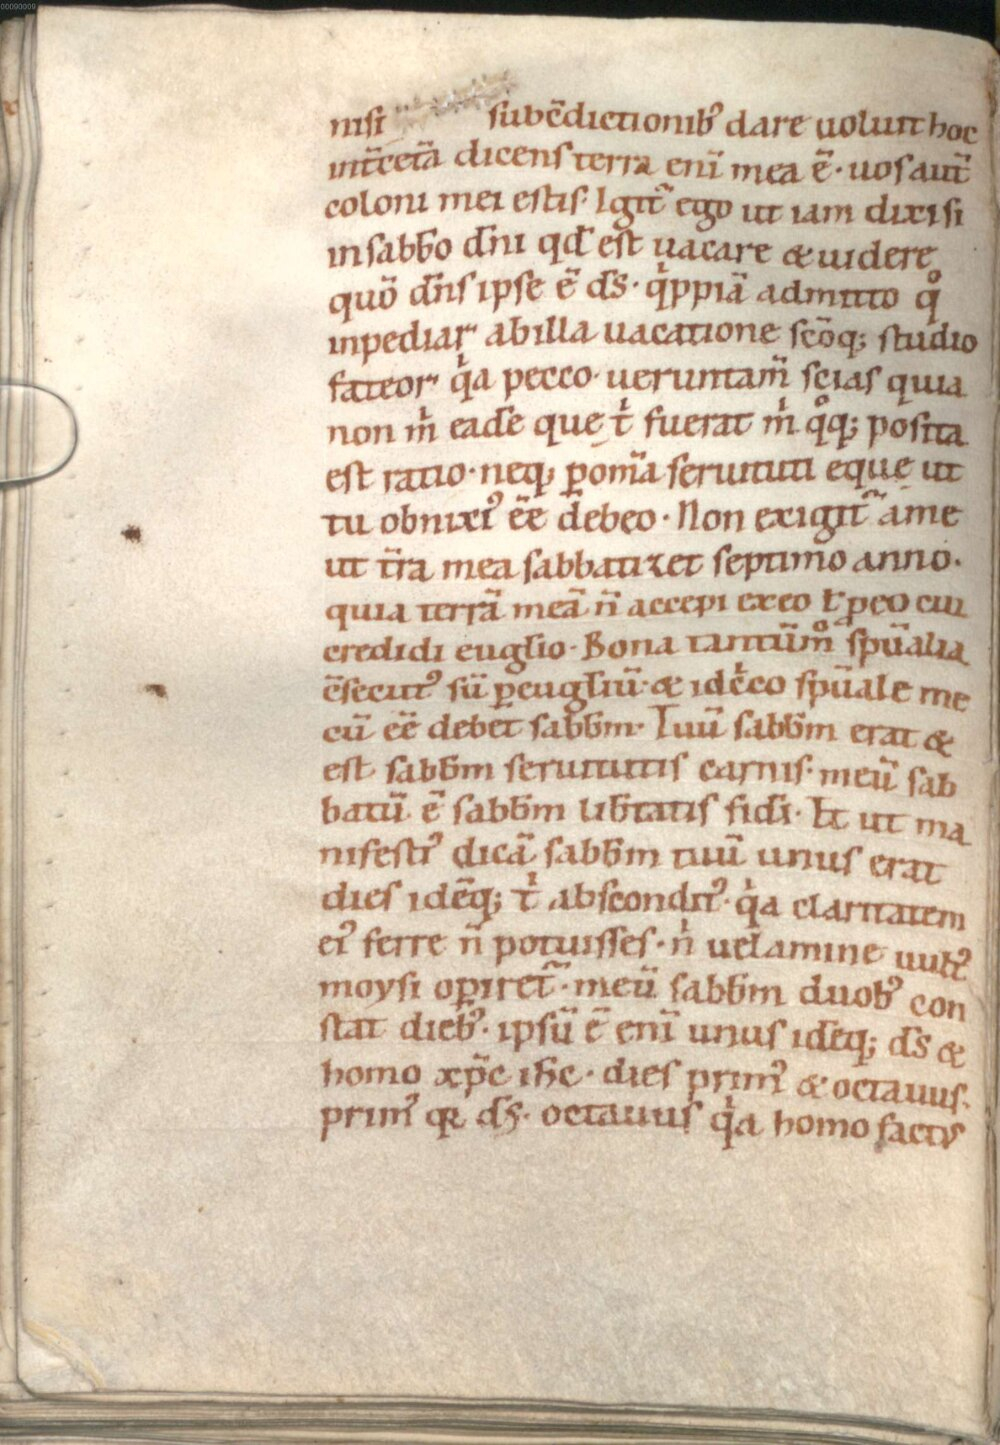 00090009
nisi subc̄dictionib᾽ dare uoluit hoc
int̄cet̄a dicens terra eni̅ mea ē· uos aut̄
coloni mei estis· Igit᷑ ego ut iam dixi si
in sabb̄o dn̄i qđ est uacare & uidere
quō dn̄s ipse ē ds̄· qͥppiā admitto qͦ
inpediar ab illa uacatione scōq; studio
fateor qͥa pecco· ueruntam̄ scias quia
non mͥ eadē que tͥ fuerat mͥ qͦq; posita
est ratio· neq; ꝑ om̄ia seruituti eque ut
tu obnixi᾽ ēe debeo· Non exigit᷑ a me
ut tr̄a mea sabbatizet septimo anno·
quia terrā meā n̄ accepi exeo ł ꝓ eo cui
credidi euglio· Bona tantūm̊ spūalia
c̄secut᾽ sū ꝑ eugliū· & idcͥco spūale me
cū ēe debet sabb̄m· Tuū sabb̄m erat &
est sabb̄m seruitutis carnis· meū sab
batū ē sabb̄m lib̄tatis fidi̅· Et ut ma
nifesti᾽ dicā sabb̄m tuū unus erat
dies idēq; tͥ abscondit᾽· qͥa claritatem
ei᾽ ferre n̄ potuisses· nͥ uelamine uult᾽
moysi opiret᷑· meū sabb̄m duob᾽ con
stat dieb᾽· ipsū ē eni̅ unus idēq; ds̄ &
homo xp̄c ih̄c· dies prim᾽ & octauus·
prim᾽ qꝛ ds̄· octauus qͥa homo factꝰ